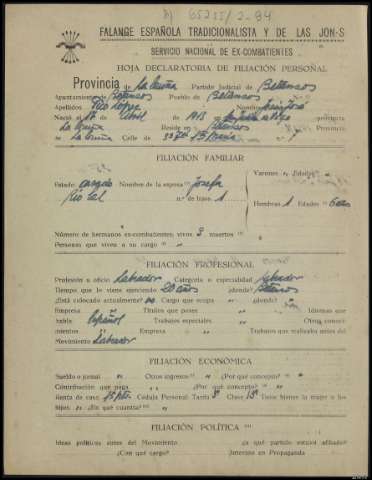 65255/2-94
FALANGE ESPAÑOLA TRADICIONALISTA Y DE LAS JON-S
SERVICIO NACIONAL DE EX-COMBATIENTES
HOJA DECLARATORIA DE FILIACIÓN PERSONAL
Provincia de La Coruña Partido Judicial de Betanzos
Ayuntamiento de Betanzos Pueblo de Betanzos
Apellidos Rio López Nombre José
Nació el 18 de Abril de 1913 en provincia
La Coruña Reside en Betanzos Provincia
La Coruña Calle de Sta María 7
FILIACIÓN FAMILIAR
Estado casado Nombre de la esposa Josefa Varones " Edades "
Rio Cal n.º de hijos 1 Hembras 1 Edades 6 años
Número de hermanos ex-combatientes; vivos 3 muertos "
Personas que viven a su cargo "
FILIACIÓN PROFESIONAL
Profesión u oficio Labrador Categoría o especialidad Labrador
Tiempo que lo viene ejerciendo 20 años ¿dónde? Betanzos
¿Está colocado actualmente? no Cargo que ocupa " ¿dónde? "
Empresa " Títulos que posee " Idiomas que
habla Español Empresa " Otros conoci-
mientos " Trabajos que realizaba antes del
Movimiento Labrador
FILIACIÓN ECONÓMICA
Sueldo o jornal " Otros ingresos " ¿Por qué concepto? "
Contribución que paga " ¿Por qué concepto? "
Renta de casa 15 pts. Cédula Personal Tarifa 3ª Clase 13ª Tiene bienes la mujer o los
hijos no ¿En qué cuantía? "
FILIACIÓN POLÍTICA
Ideas políticas antes del Movimiento ¿a qué partido estuvo afiliado?
¿Con qué cargo? Intervino en Propaganda